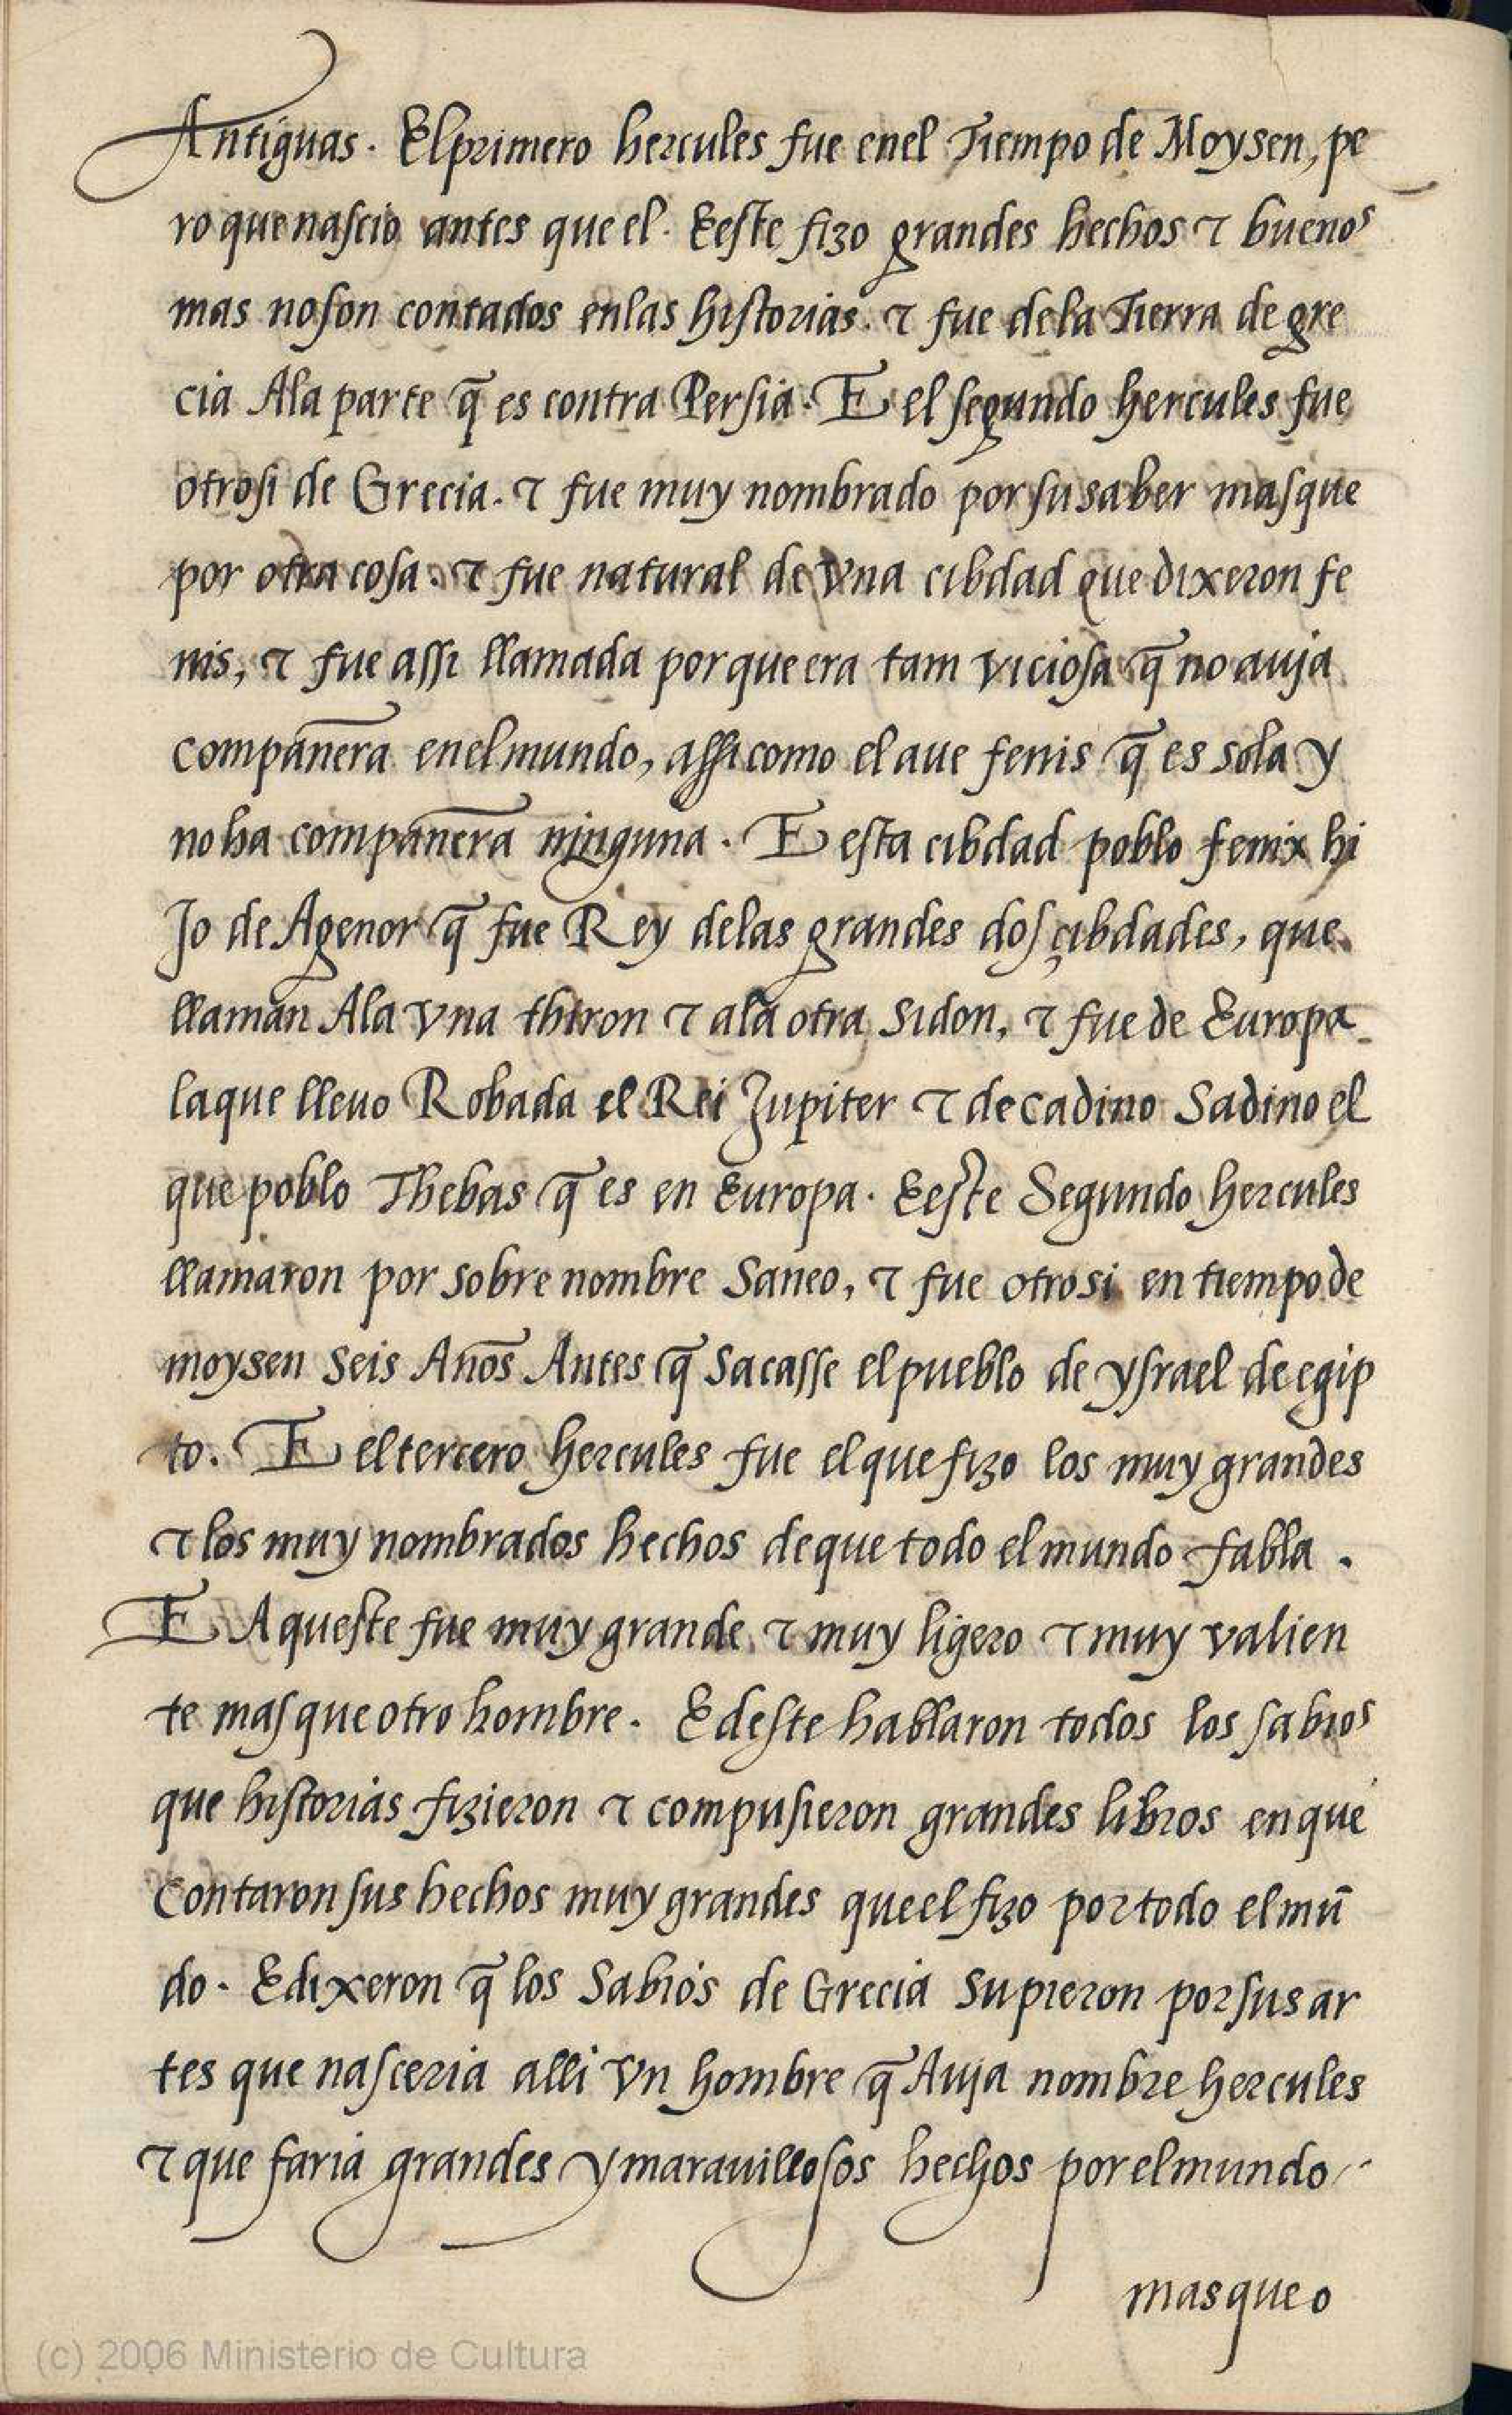 Antiguas. El primero hercules fue enel Tiempo de Moysen, pe
ro que nascio antes que el. Eeste fizo grandes hechos ⁊ buenos
mas no son contados enlas historias. ⁊ fue dela Tierra de gre
cia Ala parte q̄ es contra Persia. E el segundo hercules fue
otrosi de Grecia. ⁊ fue muy nombrado por su saber mas que
por otra cosa. ⁊ fue natural de vna cibdad que dixeron fe
nis, ⁊ fue assi llamada por que era tam viciosa q̄ no auja
compañera enel mundo, assi como el aue fenis q̄ es sola y
no ha compañera ninguna. E esta cibdad poblo fenix hi
Jo de Agenor q̄ fue Rey delas grandes dos çibdades, que
llaman Ala vna thiron ⁊ ala otra Sidon, ⁊ fue de Europa
la que lleuo Robada el Rei Jupiter ⁊ de cadino Sadino el
que poblo Thebas q̄ es en Europa. Eeste Segundo hercules
llamaron por sobre nombre Saneo, ⁊ fue otrosi en tiempo de
moysen Seis Años Antes q̄ Sacasse el pueblo de ysrael de egip
to. E el tercero hercules fue el que fizo los muy grandes
⁊ los muy nombrados hechos de que todo el mundo fabla.
E Aqueste fue muy grande ⁊ muy ligero ⁊ muy valien
te mas que otro hombre. E deste hablaron todos los sabios
que historias fizieron ⁊ compusieron grandes libros en que
Contaron sus hechos muy grandes que el fizo por todo el mū
do. E dixeron q̄ los Sabios de Grecia Supieron por sus ar
tes que nasceria alli vn hombre q̄ Auja nombre hercules
⁊ que faria grandes y marauillosos hechos por el mundo
mas que o
(c) 2006 Ministerio de Cultura